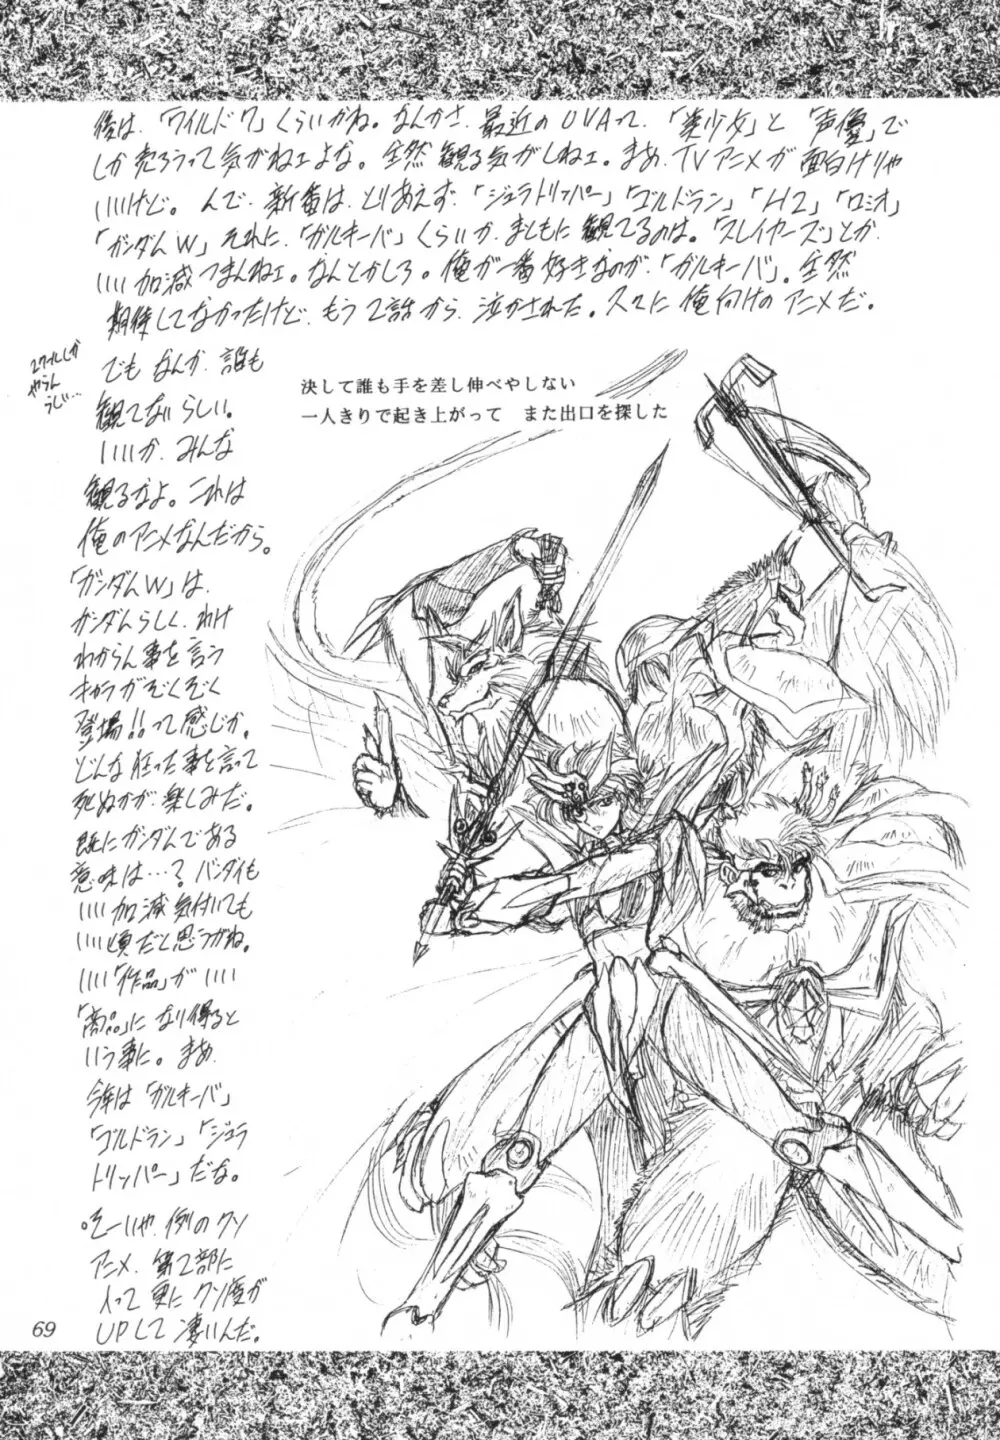 後は、「ワイルド7」くらいかね。なんかさ、最近のOVAって、「美少女」と「声優」で
しか売ろうって気がねェよな。全然観る気がしねェ。まぁ、TVアニメが面白けりゃ
いいけど。んで、新番は、とりあえず、「ジュラトリッパー」「ゴルドラン」「H2」「ロミオ」
「ガンダムW」それに、「ガルキーバ」くらいか、まともに観てるのは。「スレイヤーズ」とか、
いい加減つまんねェ。なんとかしろ。俺が一番好きなのが、「ガルキーバ」。全然
期待してなかったけど、もう2話から、泣かされた。久々に俺向けのアニメだ。
でもなんか、誰も
観てないらしい。
いいか、みんな
観るなよ。これは
俺のアニメなんだから。
「ガンダムW」は、
ガンダムらしく、わけ
わからん事を言う
キャラがぞくぞく
登場!!って感じか。
どんな狂った事を言って
死ぬかが、楽しみだ。
既にガンダムである
意味は…?バンダイも
いい加減気付いても
いい頃だと思うがね。
いい「作品」がいい
「商品」になり得ると
いう事に。まぁ、
今年は「ガルキーバ」
「ゴルドラン」「ジュラ
トリッパー」だな。
。そーいや、例のクソ
アニメ、第2部に
入って更にクソ度が
UPして凄いんだ。
決して誰も手を差し伸べやしない
一人きりで起き上がって　また出口を探した
69